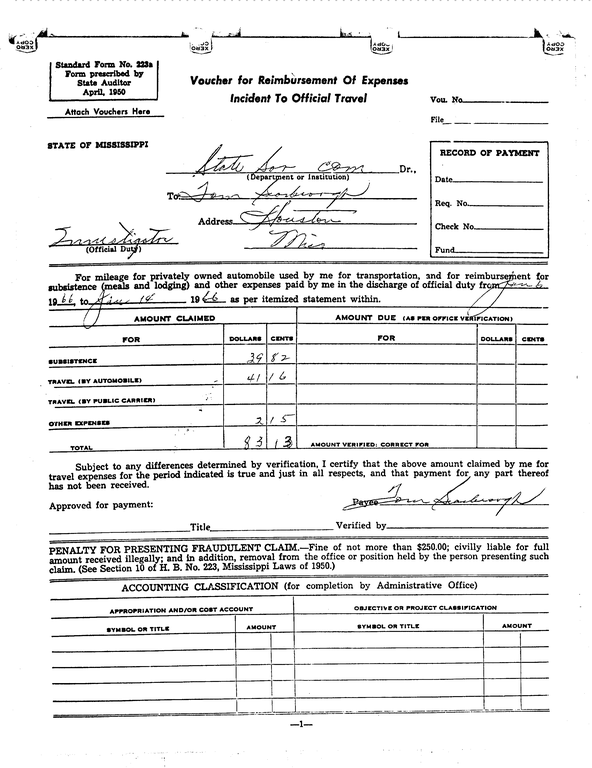 XERO COPY XERO COPY XERO COPY XERO COPY
Standard Form No. 223a
Form prescribed by
State Auditor
April, 1950
Attach Vouchers Here
Voucher for Reimbursement Of Expenses
Incident To Official Travel
Vou. No.
File
STATE OF MISSISSIPPI
RECORD OF PAYMENT
Date
Req. No.
Check No.
Fund
State Sov Com Dr.,
(Department or Institution)
To Tom Scarbrough
Address Houston
Miss
Investigator
(Official Duty)
For mileage for privately owned automobile used by me for transportation, and for reimbursement for
subsistence (meals and lodging) and other expenses paid by me in the discharge of official duty from Jan 6
1966, to Jan 14 1966 as per itemized statement within.
AMOUNT CLAIMED AMOUNT DUE (AS PER OFFICE VERIFICATION)
FOR DOLLARS CENTS FOR DOLLARS CENTS
SUBSISTENCE 39 82
TRAVEL (BY AUTOMOBILE) 41 16
TRAVEL (BY PUBLIC CARRIER)
OTHER EXPENSES 2 15
TOTAL 83 13 AMOUNT VERIFIED: CORRECT FOR
Subject to any differences determined by verification, I certify that the above amount claimed by me for
travel expenses for the period indicated is true and just in all respects, and that payment for any part thereof
has not been received.
Approved for payment: Payee Tom Scarbrough
Title Verified by
PENALTY FOR PRESENTING FRAUDULENT CLAIM.—Fine of not more than $250.00; civilly liable for full
amount received illegally; and in addition, removal from the office or position held by the person presenting such
claim. (See Section 10 of H. B. No. 223, Mississippi Laws of 1950.)
ACCOUNTING CLASSIFICATION (for completion by Administrative Office)
APPROPRIATION AND/OR COST ACCOUNT OBJECTIVE OR PROJECT CLASSIFICATION
SYMBOL OR TITLE AMOUNT SYMBOL OR TITLE AMOUNT
—1—